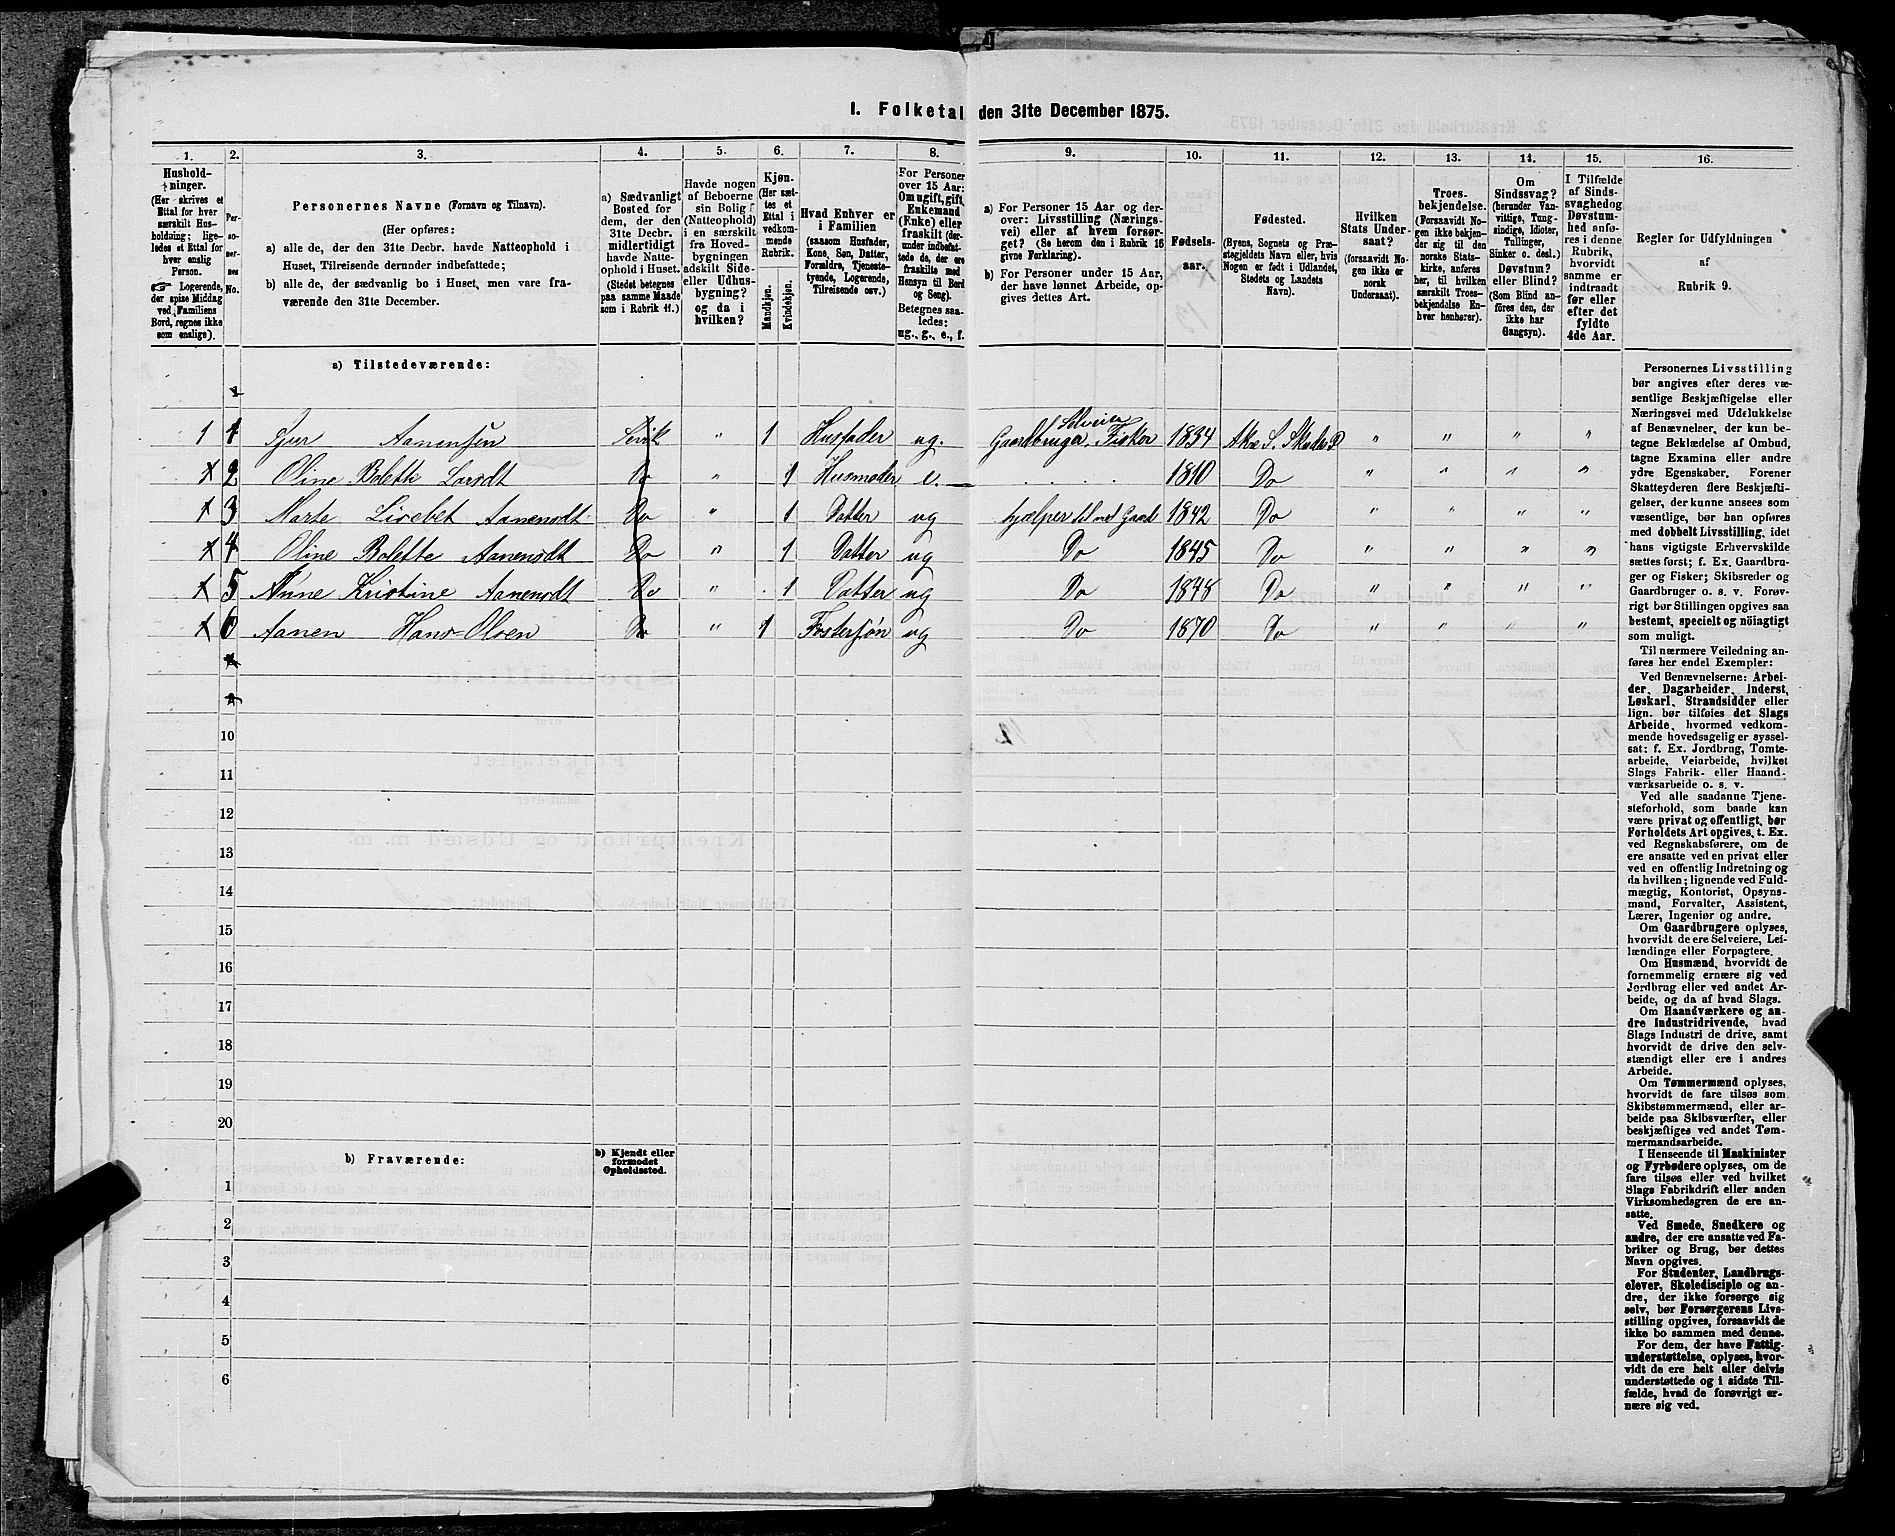 1. Folketal den 31te December 1875.
1. 2. 3. 4. 5. 6. 7. 8. 9. 10. 11. 12. 13. 14. 15. 16.
Hushold-
ninger.
(Her skrives et
Ettal for hver
særskilt Hus-
holdning; lige-
ledes et Ettal for
hver enslig
Person.
☞ Logerende,
der spise Middag
ved Familiens
Bord, regnes ikke
som enslige).
Per-
so-
ner-
nes
No.
Personernes Navne (Fornavn og Tilnavn).
(Her opføres:
a) alle de, der den 31te Decbr. havde Natteophold i
Huset, Tilreisende derunder indbefattede;
b) alle de, der sædvanlig bo i Huset, men vare fra-
værende den 31te December.
a) Sædvanligt
Bosted for
dem, der den
31te Decbr.
midlertidigt
havde Natte-
ophold i Huset.
(Stedet betegnes
paa samme Maade
som i Rubrik 11.)
Havde nogen
af Beboerne
sin Bolig
(Natteophold)
i en særskilt
fra Hoved-
bygningen
adskilt Side-
eller Udhus-
bygning?
og da i
hvilken?
Kjøn.
(Her sæt-
tes et
Ettal i
vedkom-
mende
Rubrik.
Mandkjøn.
Kvindekjøn.
Hvad Enhver er
i Familien
(saasom Husfader,
Kone, Søn, Datter,
Forældre, Tjeneste-
tyende, Logerende,
Tilreisende osv.)
For Personer
over 15 Aar:
Om ugift, gift,
Enkemand
(Enke) eller
fraskilt (der-
under indbefat-
tede de, der ere
fraskilte med
Hensyn til Bord
og Seng).
Betegnes saa-
ledes:
ug., g., e., f.
a) For Personer 15 Aar og der-
over: Livsstilling (Nærings-
vei) eller af hvem forsør-
get? (Se herom den i Rubrik 16
givne Forklaring).
b) For Personer under 15 Aar,
der have lønnet Arbeide, op-
gives dettes Art.
Fødsels-
aar.
Fødested.
(Byens, Sognets og Præ-
stegjeldets Navn eller, hvis
Nogen er født i Udlandet,
Stedets og Landets
Navn).
Hvilken
Stats Under-
saat?
(forsaavidt No-
gen ikke er
norsk
Undersaat).
Troes-
bekjendelse.
(Forsaavidt No-
gen ikke bekjen-
der sig til den
norske Stats-
kirke, anføres
her, til hvilken
særskilt Troes-
bekjendelse En-
hver henhører).
Om
Sindssvag?
(herunder Van-
vittige, Tung-
sindige, Idioter,
Tullinger,
Sinker o. desl.)
Døvstum?
eller Blind?
(Som Blind an-
føres den, der
ikke har
Gangsyn).
I Tilfælde
af Sinds-
svaghed og
Døvstum-
hed anfø-
res i denne
Rubrik,
hvorvidt
samme er
indtraadt
før eller
efter det
fyldte
4de Aar.
Regler for Udfyldningen
af
Rubrik 9.
a) Tilstedeværende:
Selveier
1 1 Aanensen " 1 Husfader ug. Gaardbruger Fisker 1834 " " " "
2 Oline Bolette Larsdt Do " 1 Husmoder e. 1810 Do " " " "
3 Marte Lisebet Aanensdt Do " 1 Datter ug hjælper til ved Gaard 1842 Do " " " "
4 Oline Bolette Aanensdt Do " 1 Datter ug Do 1845 Do " " " "
5 Anne Kristine Aanensdt Do " 1 Datter ug Do 1848 Do " " " "
6 Aanen Hans Olsen Do " 1 Fostersøn ug Do 1870 Do " " " "
10
11
12
13
14
15
16
17
18
19
20
b) Fraværende:
b) Kjendt eller
formodet
Opholdssted.
1
2
3
4
5
6
Personernes Livsstilling
bør angives efter deres væ-
sentlige Beskjæftigelse eller
Næringsvei med Udelukkelse
af Benævnelser, der kun be-
tegne Beklædelse af Ombud,
tagne Examina eller andre
ydre Egenskaber. Forener
Skatteyderen flere Beskjæfti-
gelser, der kunne ansees som
væsentlige, bør han opføres
med dobbelt Livsstilling, idet
hans vigtigste Erhvervskilde
sættes først; f. Ex. Gaardbru-
ger og Fisker; Skibsreder og
Gaardbruger o. s. v. Forøv-
rigt bør Stillingen opgives saa
bestemt, specielt og nöiagtigt
som muligt.
Til nærmere Veiledning an-
føres her endel Exempler:
Ved Benævnelserne: Arbei-
der, Dagarbeider, Inderst,
Løskarl, Strandsidder eller
lign. bør tilføies det Slags
Arbeide, hvormed vedkom-
mende hovedsagelig er syssel-
sat: f. Ex. Jordbrug, Tomte-
arbeide, Veiarbeide, hvilket
Slags Fabrik- eller Haand-
værksarbeide o. s. v.
Ved alle saadanne Tjene-
steforhold, som baade kan
være privat og offentligt, bør
Forholdets Art opgives, t. Ex.
ved Regnskabsførere, om de
ere ansatte ved en privat eller
ved en offentlig Indretning og
da hvilken; lignende ved Fuld-
mægtig, Kontorist, Opsyns-
mand, Forvalter, Assistent,
Lærer, Ingeniør og andre.
Om Gaardbrugere oplyses,
hvorvidt de ere Selveiere, Lei-
lændinge eller Forpagtere.
Om Husmænd, hvorvidt de
fornemmelig ernære sig ved
Jordbrug eller ved andet Ar-
beide, og da af hvad Slags.
Om Haandværkere og an-
dre Industridrivende, hvad
Slags Industri de drive, samt
hvorvidt de drive den selv-
stændigt eller ere i andres
Arbeide.
Om Tømmermænd oplyses,
hvorvidt de fare tilsøs som
Skibstømmermænd, eller ar-
beide paa Skibsværfter, eller
beskjæftiges ved andet Tøm-
mermandsarbeide.
I Henseende til Maskinister
og Fyrbødere oplyses, om de
fare tilsøs eller ved hvilket
Slags Fabrikdrift eller anden
Virksomhedsgren de ere an-
satte.
Ved Smede, Snedkere og
andre, der ere ansatte ved Fa-
briker og Brug, bør dettes
Navn opgives.
For Studenter, Landbrugs-
elever, Skoledisciple og an-
dre, der ikke forsørge sig
selv, bør Forsørgerens Livs-
stilling opgives, forsaavidt de
ikke bo sammen med denne.
For dem, der have Fattig-
understøttelse, oplyses, hvor-
vidt de ere helt eller delvis
understøttede og i sidste Til-
fælde, hvad de forøvrigt er-
nære sig ved.